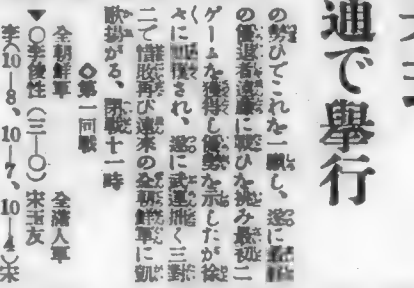 通で擧行
の勢ひでこれを一蹴し、遂に
の優退者遠藤に戰ひを挑み最初二
ゲームを獲得し優勢を示したが徐
々に され、遂に武運拙く三對
二で惜敗再び遠來の全朝鮮軍に凱
歌揚がる、閉戰十一時
◇第一回戰
全朝鮮軍 全滿人軍
▼〇李俊性(三—〇)宋玉友
李(10—8、10—7、10—4)宋